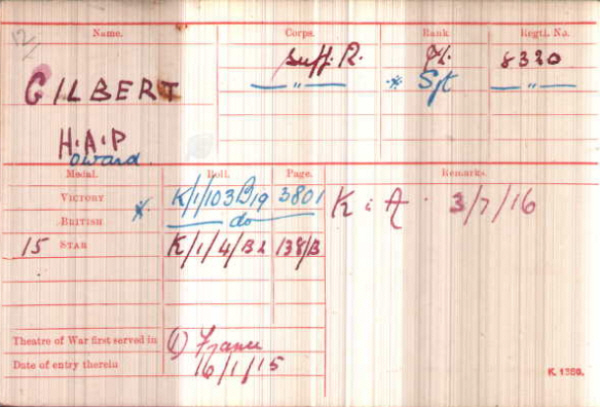 Name. Corps. Rank Regtl. No.
GILBERT Suff. R. 8320
— " — * Sjt — " —
H.A.P
oward
Medal. Roll. Page. Remarks.
VICTORY * K/1/103B19 3801 K i A. 3/7/16
BRITISH — do —
15 STAR K/1/4/B2 138/B
Theatre of War first served in (1) France
Date of entry therein 16/1/15
K. 1380.